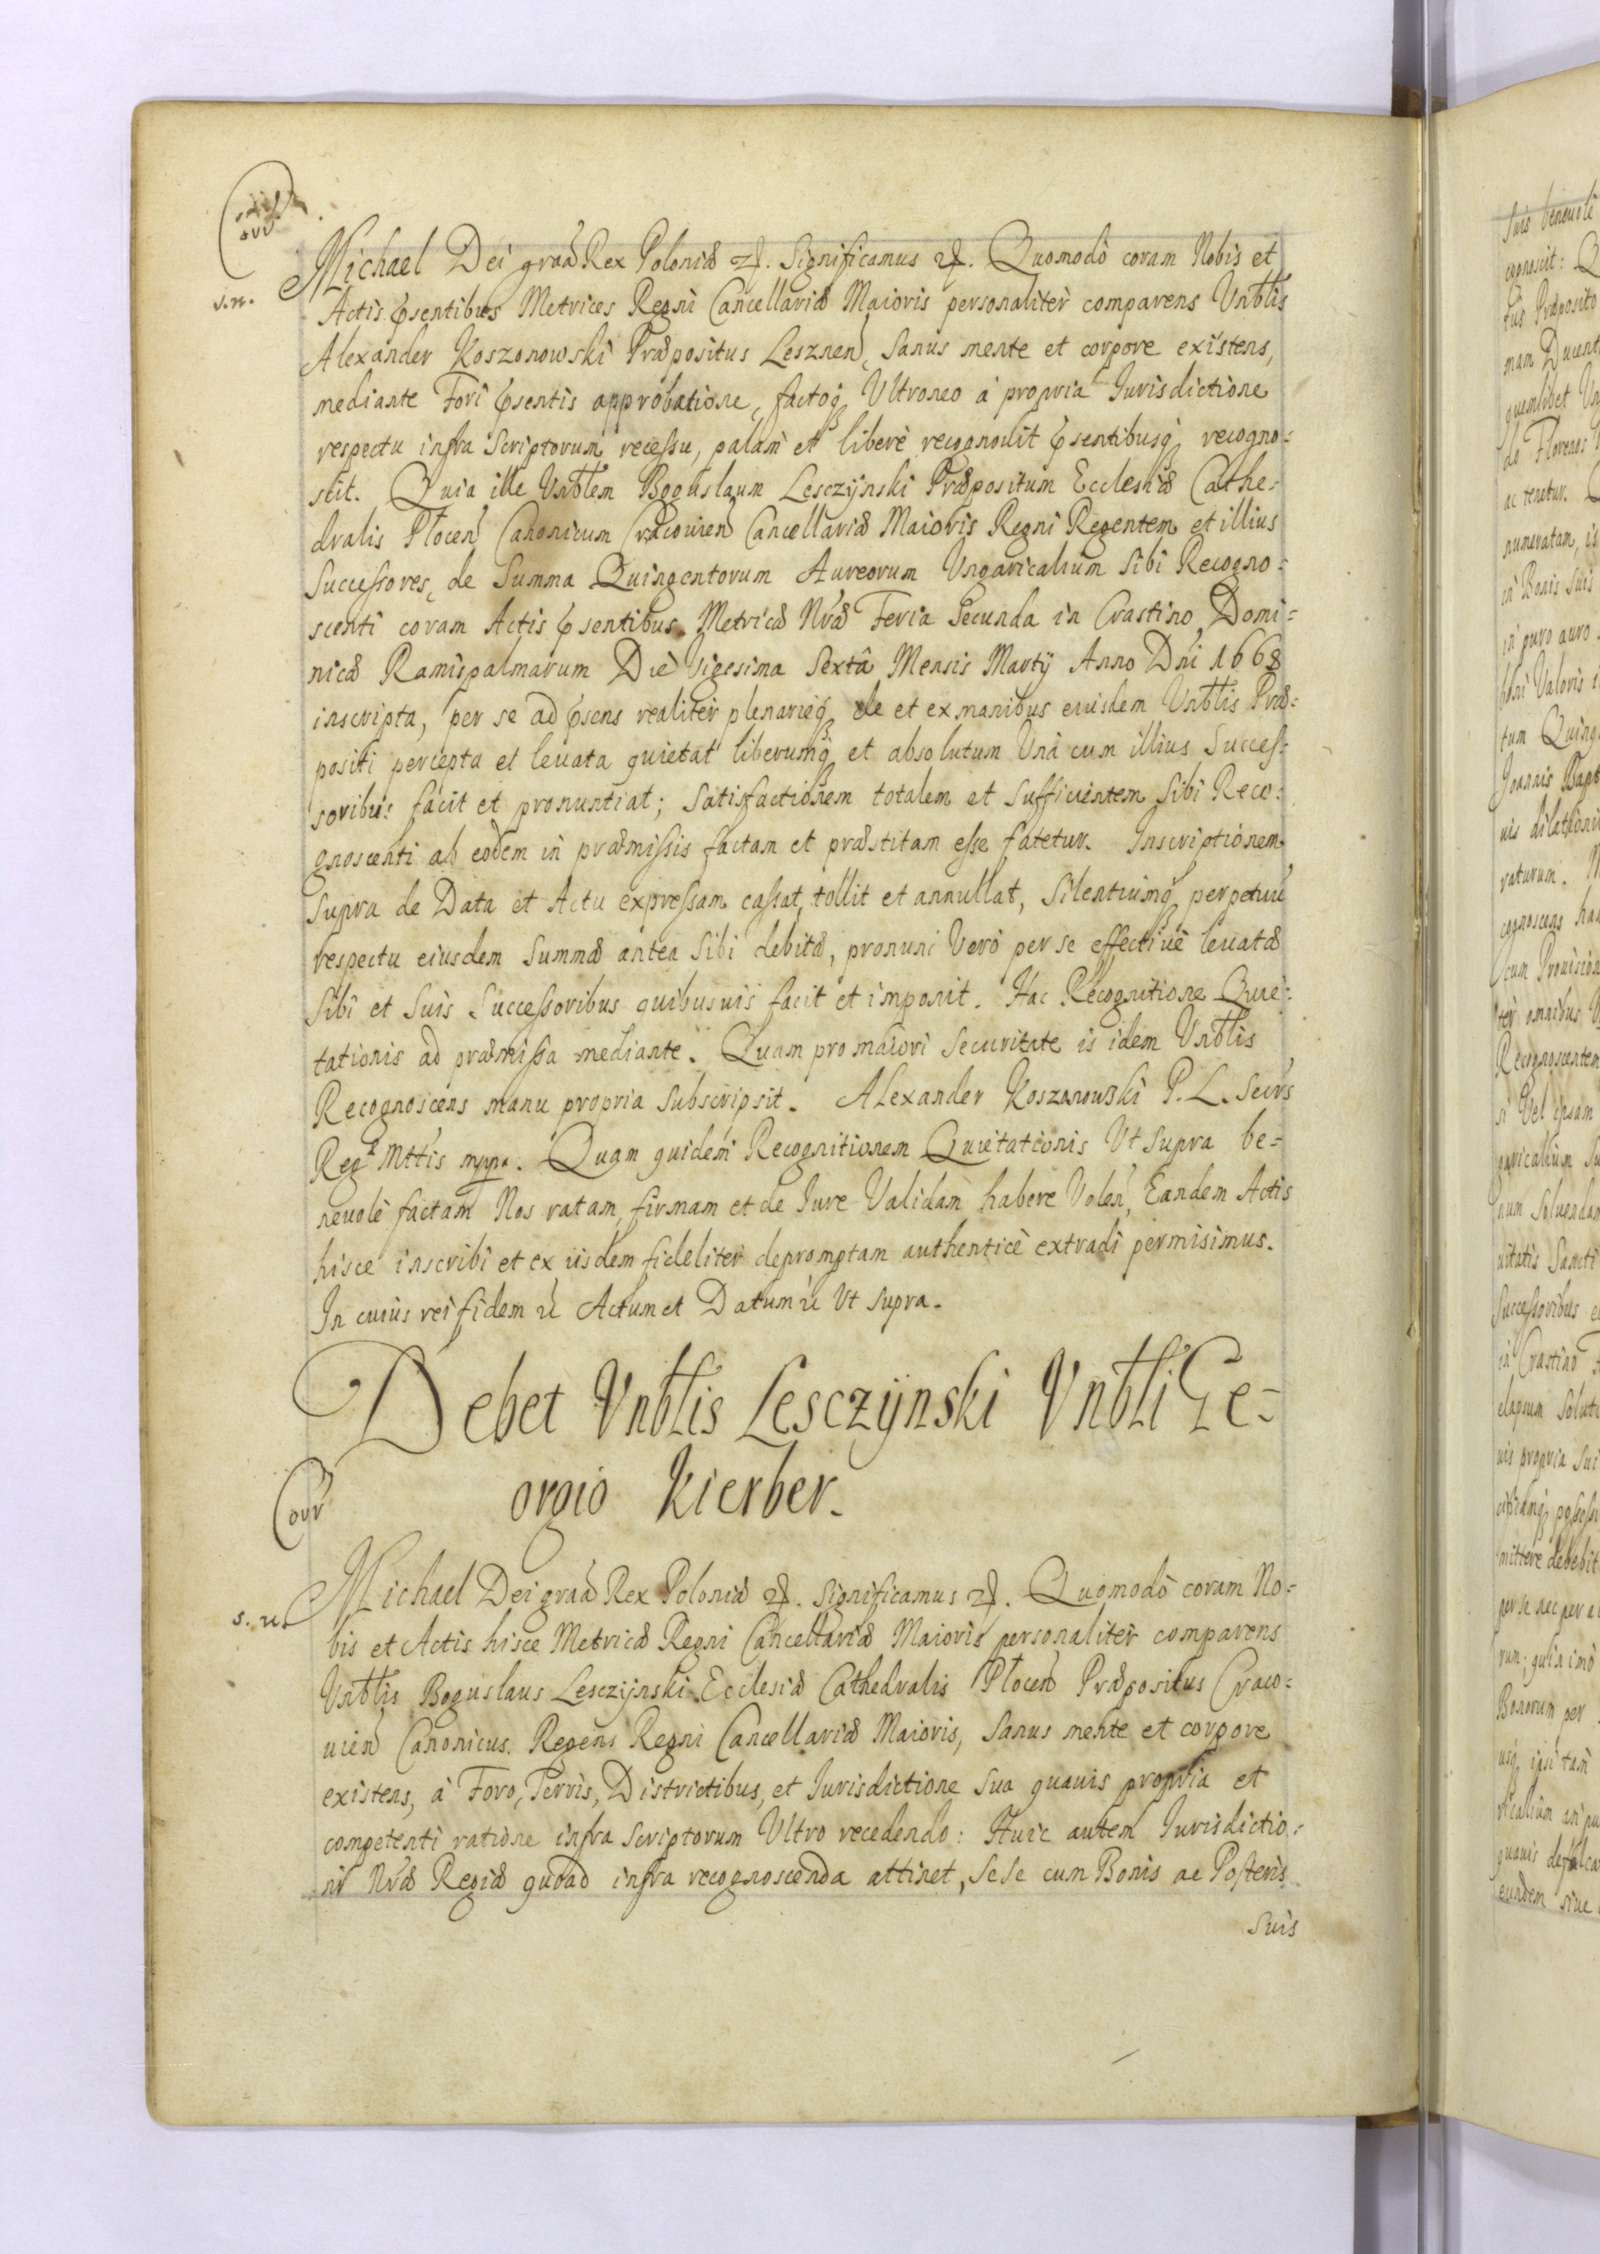 Michael Dei graa Rex Poloniæ etc. Significamus etc. Quomodò coram Nobis et
s. n.
Actis pſentibus Metrices Regni Cancellariæ Maioris personalitèr comparens Vnblis
Alexander Koszonowski Præpositus Lesznen, Sanus mente et corpore existens,
mediante Fori pſentis approbatione, factoq Vltroneo à propria Iurisdictione
respectu infra Scriptorum recessu, palam et liberè recognouit pſentibusq recogno=
scit. Quia ille Vnblem Boguslaum Lesczÿnski Præpositum Ecclesiæ Cathe=
dralis Plocen Canonicum Cracouien Cancellariæ Maioris Regni Regentem et illius
Successores, de Summa Quingentorum Aureorum Vngaricalium Sibi Recogno=
scenti coram Actis pſentibus Metricæ Nræ Feria Secunda in Crastino Domi=
nicæ Ramispalmarum Die Vigesima Sexta Mensis Martÿ Anno Dni 1668
inscripta, per se ad pſens realiter plenarieq de et ex manibus eiusdem Vnblis Præ=
positi percepta et leuata quietat liberumq et absolutum Vnà cum illius Succes=
soribus facit et pronuntiat; Satisfactionem totalem et Sufficientem Sibi Reco=
gnoscenti ab eodem in præmissis factam et præstitam esse fatetur. Inscriptionem
Supra de Data et Actu expressam cassat, tollit et annullat, Silentiumq perpetuu
respectu eiusdem Summæ antea Sibi debitæ, pronunc Verò per se effectiuè leuatæ
Sibi et Suis Successoribus quibusuis facit et imponit. Hac Recognitione Quie=
tationis ad præmissa mediante. Quam pro maiori Securitate is idem Vnblis
Recognoscens manu propria Subscripsit. Alexander Koszonowski P. L. Secrs
Reg Mttis mppa. Quam quidem Recognitionem Quietationis Vt Supra be=
neuolè factam Nos ratam, firmam et de Iure Validam habere Volen, Eandem Actis
hisce inscribi et ex iisdem fideliter depromptam authenticè extradi permisimus.
In cuius rei fidem etc Actum et Datum etc Vt Supra.
Debet Vnblis Lesczÿnski Vnbli Ge=
orgio Kierber.
Michael Dei graa Rex Poloniæ etc. Significamus etc. Quomodò coram No=
bis et Actis hisce Metricæ Regni Cancellariæ Maioris personalitèr comparens
Vnblis Boguslaus Lesczÿnski Ecclesiæ Cathedralis Plocen Præpositus Craco=
uien Canonicus. Regens Regni Cancellariæ Maioris, Sanus mente et corpore
existens, à Foro, Terris, Districtibus, et Iurisdictione Sua quauis propria et
competenti ratione infra Scriptorum Vltro recedendo: Huic autem Iurisdictio=
ni Nræ Regiæ quoad infra recognoscenda attinet, Sese cum Bonis ac Posteris
Suis